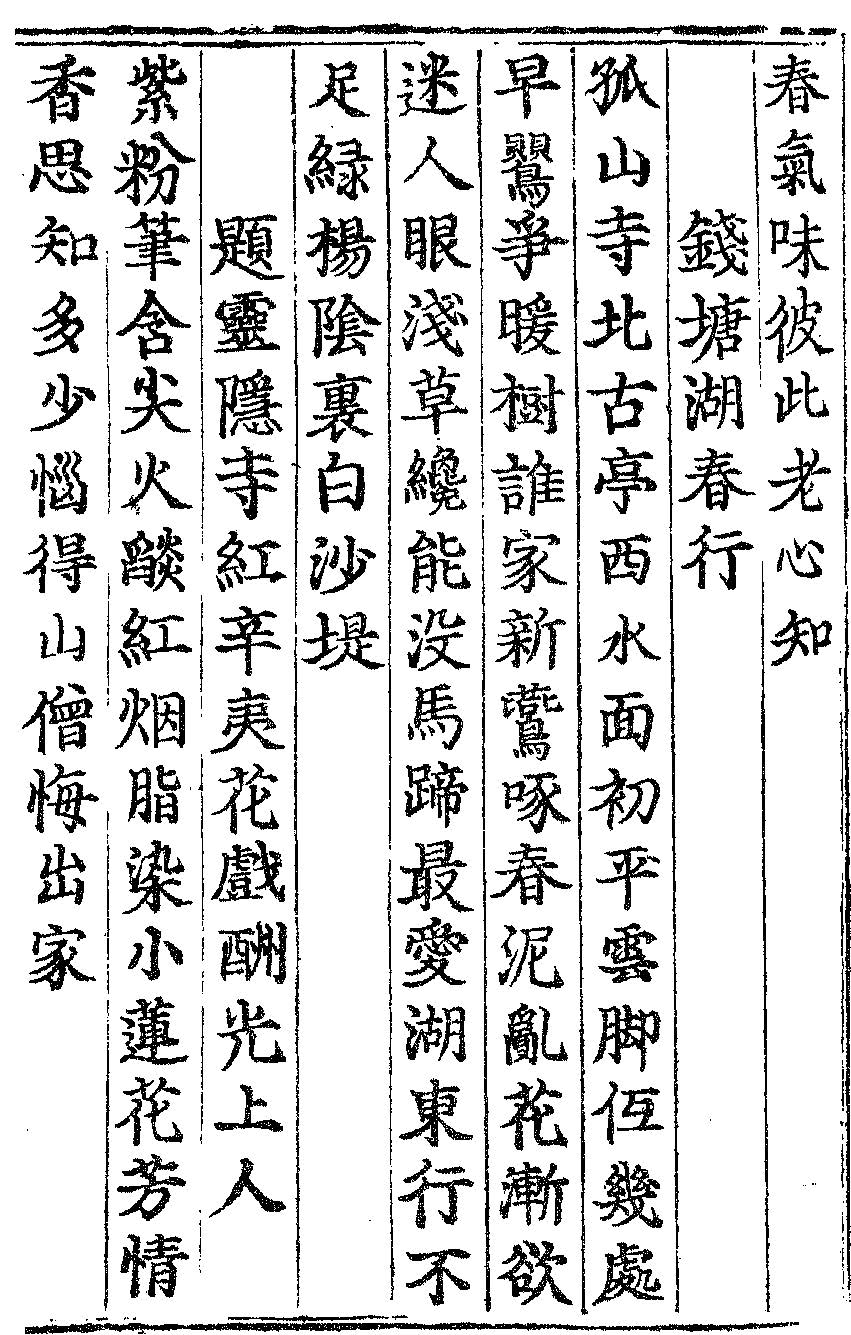 春氣味彼此老心知
錢塘湖春行
孤山寺北古亭西水面初平雲脚低幾處
早鸎爭暖樹誰家新鷰啄春泥亂花漸欲
迷人眼淺草纔能没馬蹄最愛湖東行不
足緑楊陰裏白沙堤
題靈隱寺紅辛夷花戲酬光上人
紫粉筆含尖火燄紅烟脂染小蓮花芳情
香思知多少惱得山僧悔出家